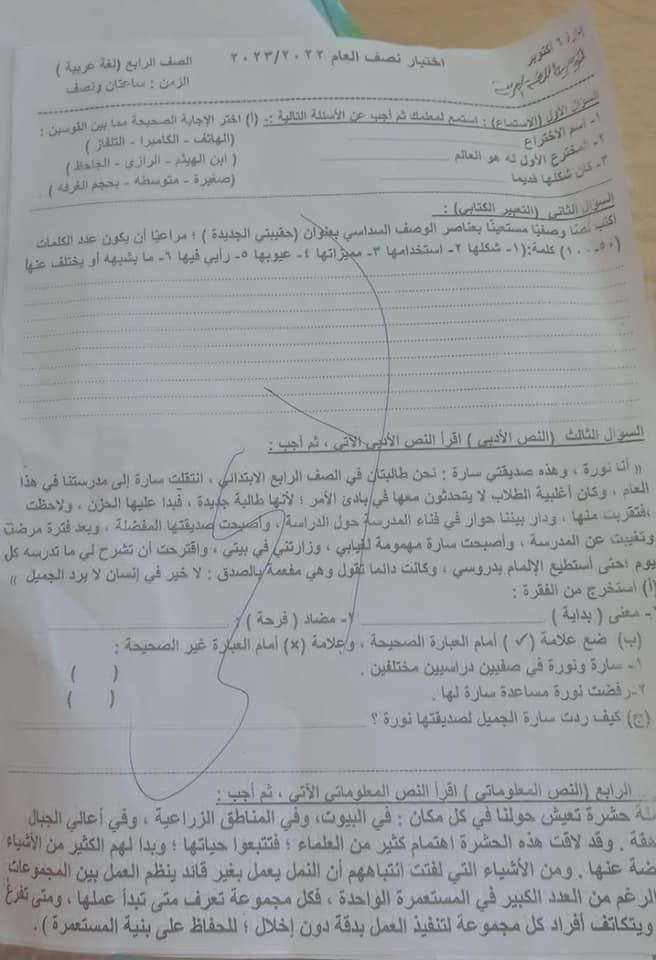 إدارة ٦ أكتوبر
اختبار نصف العام ٢٠٢٣/٢٠٢٢
الصف الرابع (لغة عربية )
الزمن : ساعتان ونصف
السؤال الأول (الاستماع) : استمع لمعلمك ثم أجب عن الأسئلة التالية :- (أ) اختر الإجابة الصحيحة مما بين القوسين :
١- اسم الاختراع (الهاتف - الكاميرا - التلفاز )
٢- المخترع الأول له هو العالم ( ابن الهيثم - الرازي - الجاحظ )
٣- كان شكلها قديما (صغيرة - متوسطه - بحجم الغرفه )
السؤال الثاني (التعبير الكتابي) :
اكتب نصًا وصفيًا مستعينًا بعناصر الوصف السداسي بعنوان (حقيبتي الجديدة ) ؛ مراعيًا أن يكون عدد الكلمات
(٥٠-١٠٠) كلمة: (١- شكلها ٢- استخدامها ٣- مميزاتها ٤- عيوبها ٥- رأيي فيها ٦- ما يشبهه أو يختلف عنها
السؤال الثالث (النص الأدبي ) اقرأ النص الأدبي الآتي ، ثم أجب :
(( أنا نورة ، وهذه صديقتي سارة : نحن طالبتان في الصف الرابع الابتدائي ، انتقلت سارة إلى مدرستنا في هذا
العام ، وكان أغلبية الطلاب لا يتحدثون معها في بادئ الأمر ؛ لأنها طالبة جديدة ، فبدا عليها الحزن ، ولاحظت
،فتقربت منها ، ودار بيننا حوار في فناء المدرسة حول الدراسة ، وأصبحت صديقتها المفضلة ، وبعد فترة مرضت
وتغيبت عن المدرسة ، وأصبحت سارة مهمومة لغيابي ، وزارتني في بيتي ، واقترحت أن تشرح لي ما تدرسه كل
يوم ؛حتى أستطيع الإلمام بدروسي ، وكانت دائما تقول وهي مفعمة بالصدق : لا خير في إنسان لا يرد الجميل ))
(أ) استخرج من الفقرة :
١- معنى ( بداية ) ٢- مضاد ( فرحة ) :
(ب) ضع علامة (✓) أمام العبارة الصحيحة ، وعلامة (×) أمام العبارة غير الصحيحة :
١- سارة ونورة في صفيين دراسيين مختلفين . ( )
٢-رفضت نورة مساعدة سارة لها . ( )
(ج) كيف ردت سارة الجميل لصديقتها نورة ؟
الرابع (النص المعلوماتي ) اقرأ النص المعلوماتي الآتي ، ثم أجب :
حشرة تعيش حولنا في كل مكان : في البيوت، وفي المناطق الزراعية ، وفي أعالي الجبال
وقد لاقت هذه الحشرة اهتمام كثير من العلماء ؛ فتتبعوا حياتها ؛ وبدا لهم الكثير من الأشياء
عنها . ومن الأشياء التي لفتت انتباههم أن النمل يعمل بغير قائد ينظم العمل بين المجموعات
الرغم من العدد الكبير في المستعمرة الواحدة ، فكل مجموعة تعرف متى تبدأ عملها ، ومتى تفرغ
ويتكاتف أفراد كل مجموعة لتنفيذ العمل بدقة دون إخلال ؛ للحفاظ على بنية المستعمرة ).